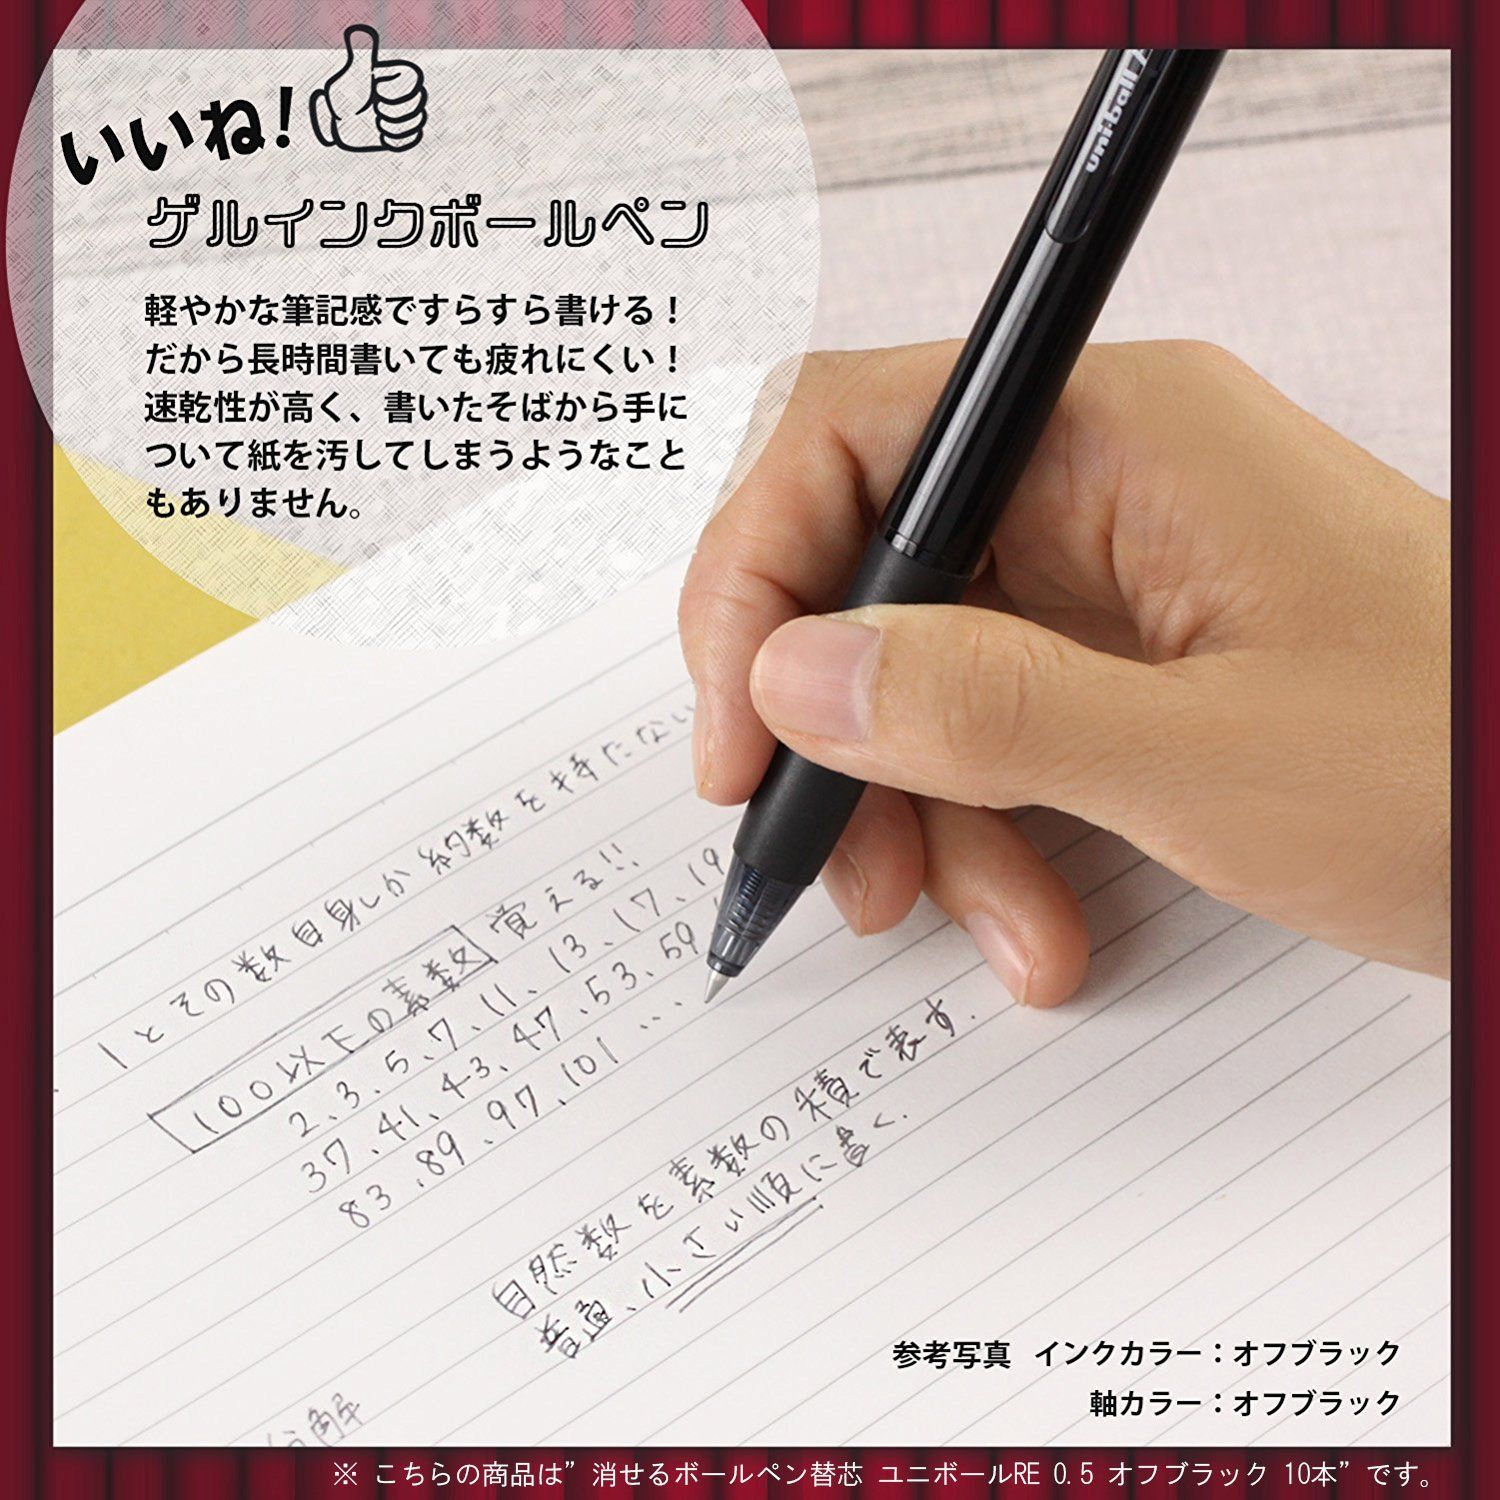 いいね!
ゲルインクボールペン
軽やかな筆記感ですらすら書ける！
だから長時間書いても疲れにくい！
速乾性が高く、書いたそばから手に
ついて紙を汚してしまうようなこと
もありません。
uni-ball
1とその数自身しか約数を持たない
100以下の素数 覚える!!
2、3、5、7、11、13、17、19
37、41、43、47、53、59
83、89、97、101 ...
自然数を素数の積で表す.
普通、小さい順に書く.
分解
参考写真 インクカラー：オフブラック
軸カラー：オフブラック
※ こちらの商品は”消せるボールペン替芯 ユニボールRE 0.5 オフブラック 10本”です。